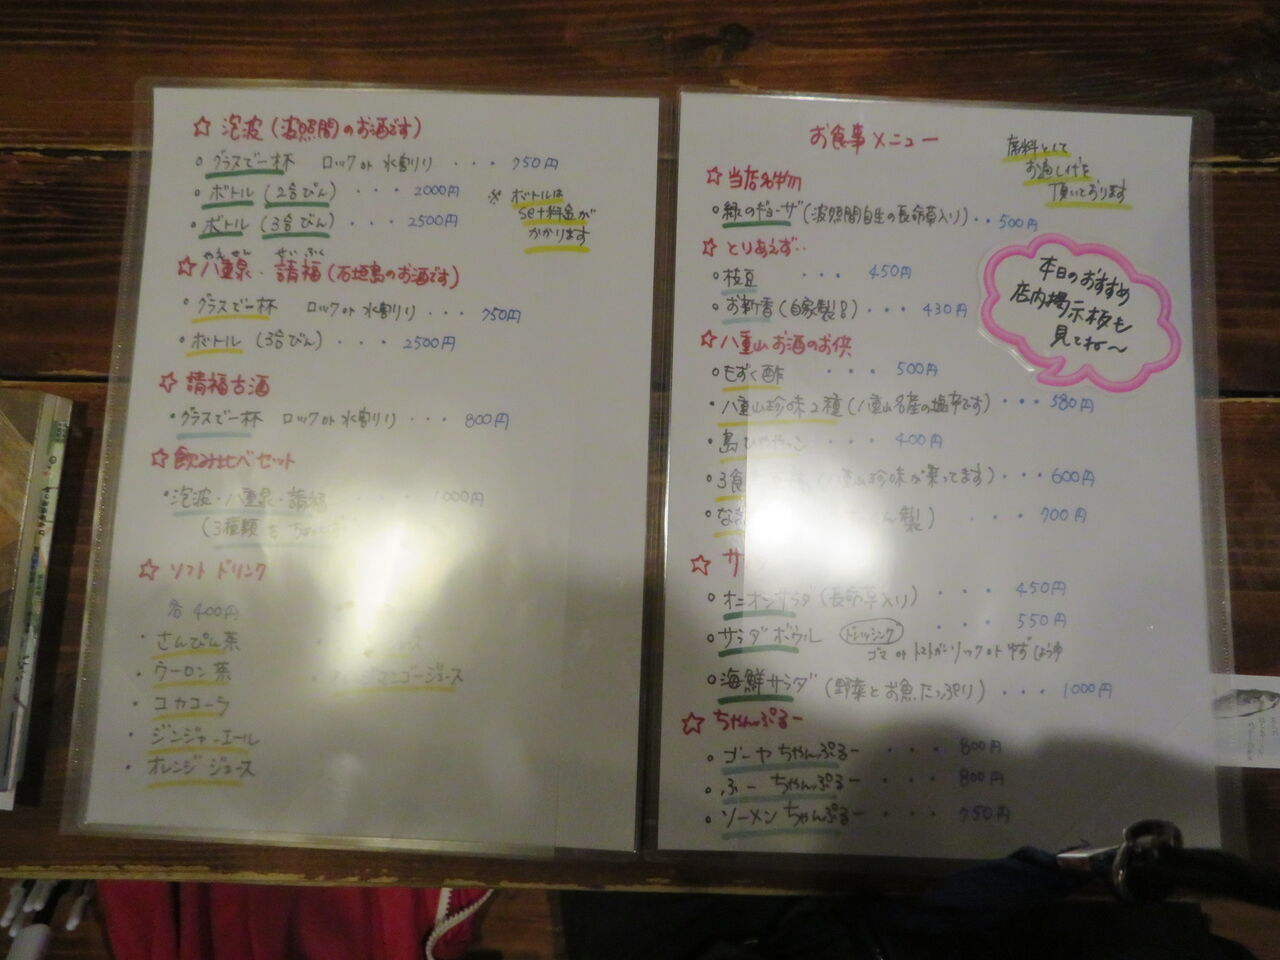 ☆ 泡波(波照間のお酒です)
・グラスで一杯 ロック or 水割り ・・・ 750円
・ボトル (2合びん) ・・・ 2000円
・ボトル (3合びん) ・・・ 2500円
※ ボトルは
set料金が
かかります
やえせん せいふく
☆八重泉・請福(石垣島のお酒です)
・グラスで一杯 ロック or 水割り ・・・ 750円
・ボトル (3合びん) ・・・ 2500円
☆ 請福古酒
・グラスで一杯 ロック or 水割り ・・・ 800円
☆飲み比べセット
・泡波・八重泉・請福 ・・・ 1000円
(3種類を ちょっとず
☆ ソフトドリンク
各 400円
・さんぴん茶
・ウーロン茶
・コカコーラ
・ジンジャーエール
・オレンジジュース
マンゴージュース
お食事メニュー
席料として
お通し代を
頂いております
☆当店名物
・緑のギョーザ(波照間自生の長命草入り)・・500円
☆とりあえず・・
・枝豆 ・・・ 450円
・お新香(自家製!!)・・・ 430円
本日のおすすめ
店内掲示板も
見てね〜
☆八重山お酒のお供
・もずく酢 ・・・ 500円
・八重山珍味2種(八重山名産の塩辛です)・・・580円
・島ひややっこ ・・・ 400円
・3食 (八重山珍味が乗ってます)・・・600円
・な くん製) ・・・ 700円
☆ サ
・オニオンサラダ(長命草入り) ・・・ 450円
・サラダボウル ドレッシング ・・・ 550円
ゴマ or トマトガーリック or ゆずしょうゆ
・海鮮サラダ (野菜とお魚たっぷり)・・・1000円
☆ ちゃんぷるー
・ゴーヤちゃんぷるー ・・・ 800円
・ふーちゃんぷるー ・・・ 800円
・ソーメンちゃんぷるー ・・・ 750円